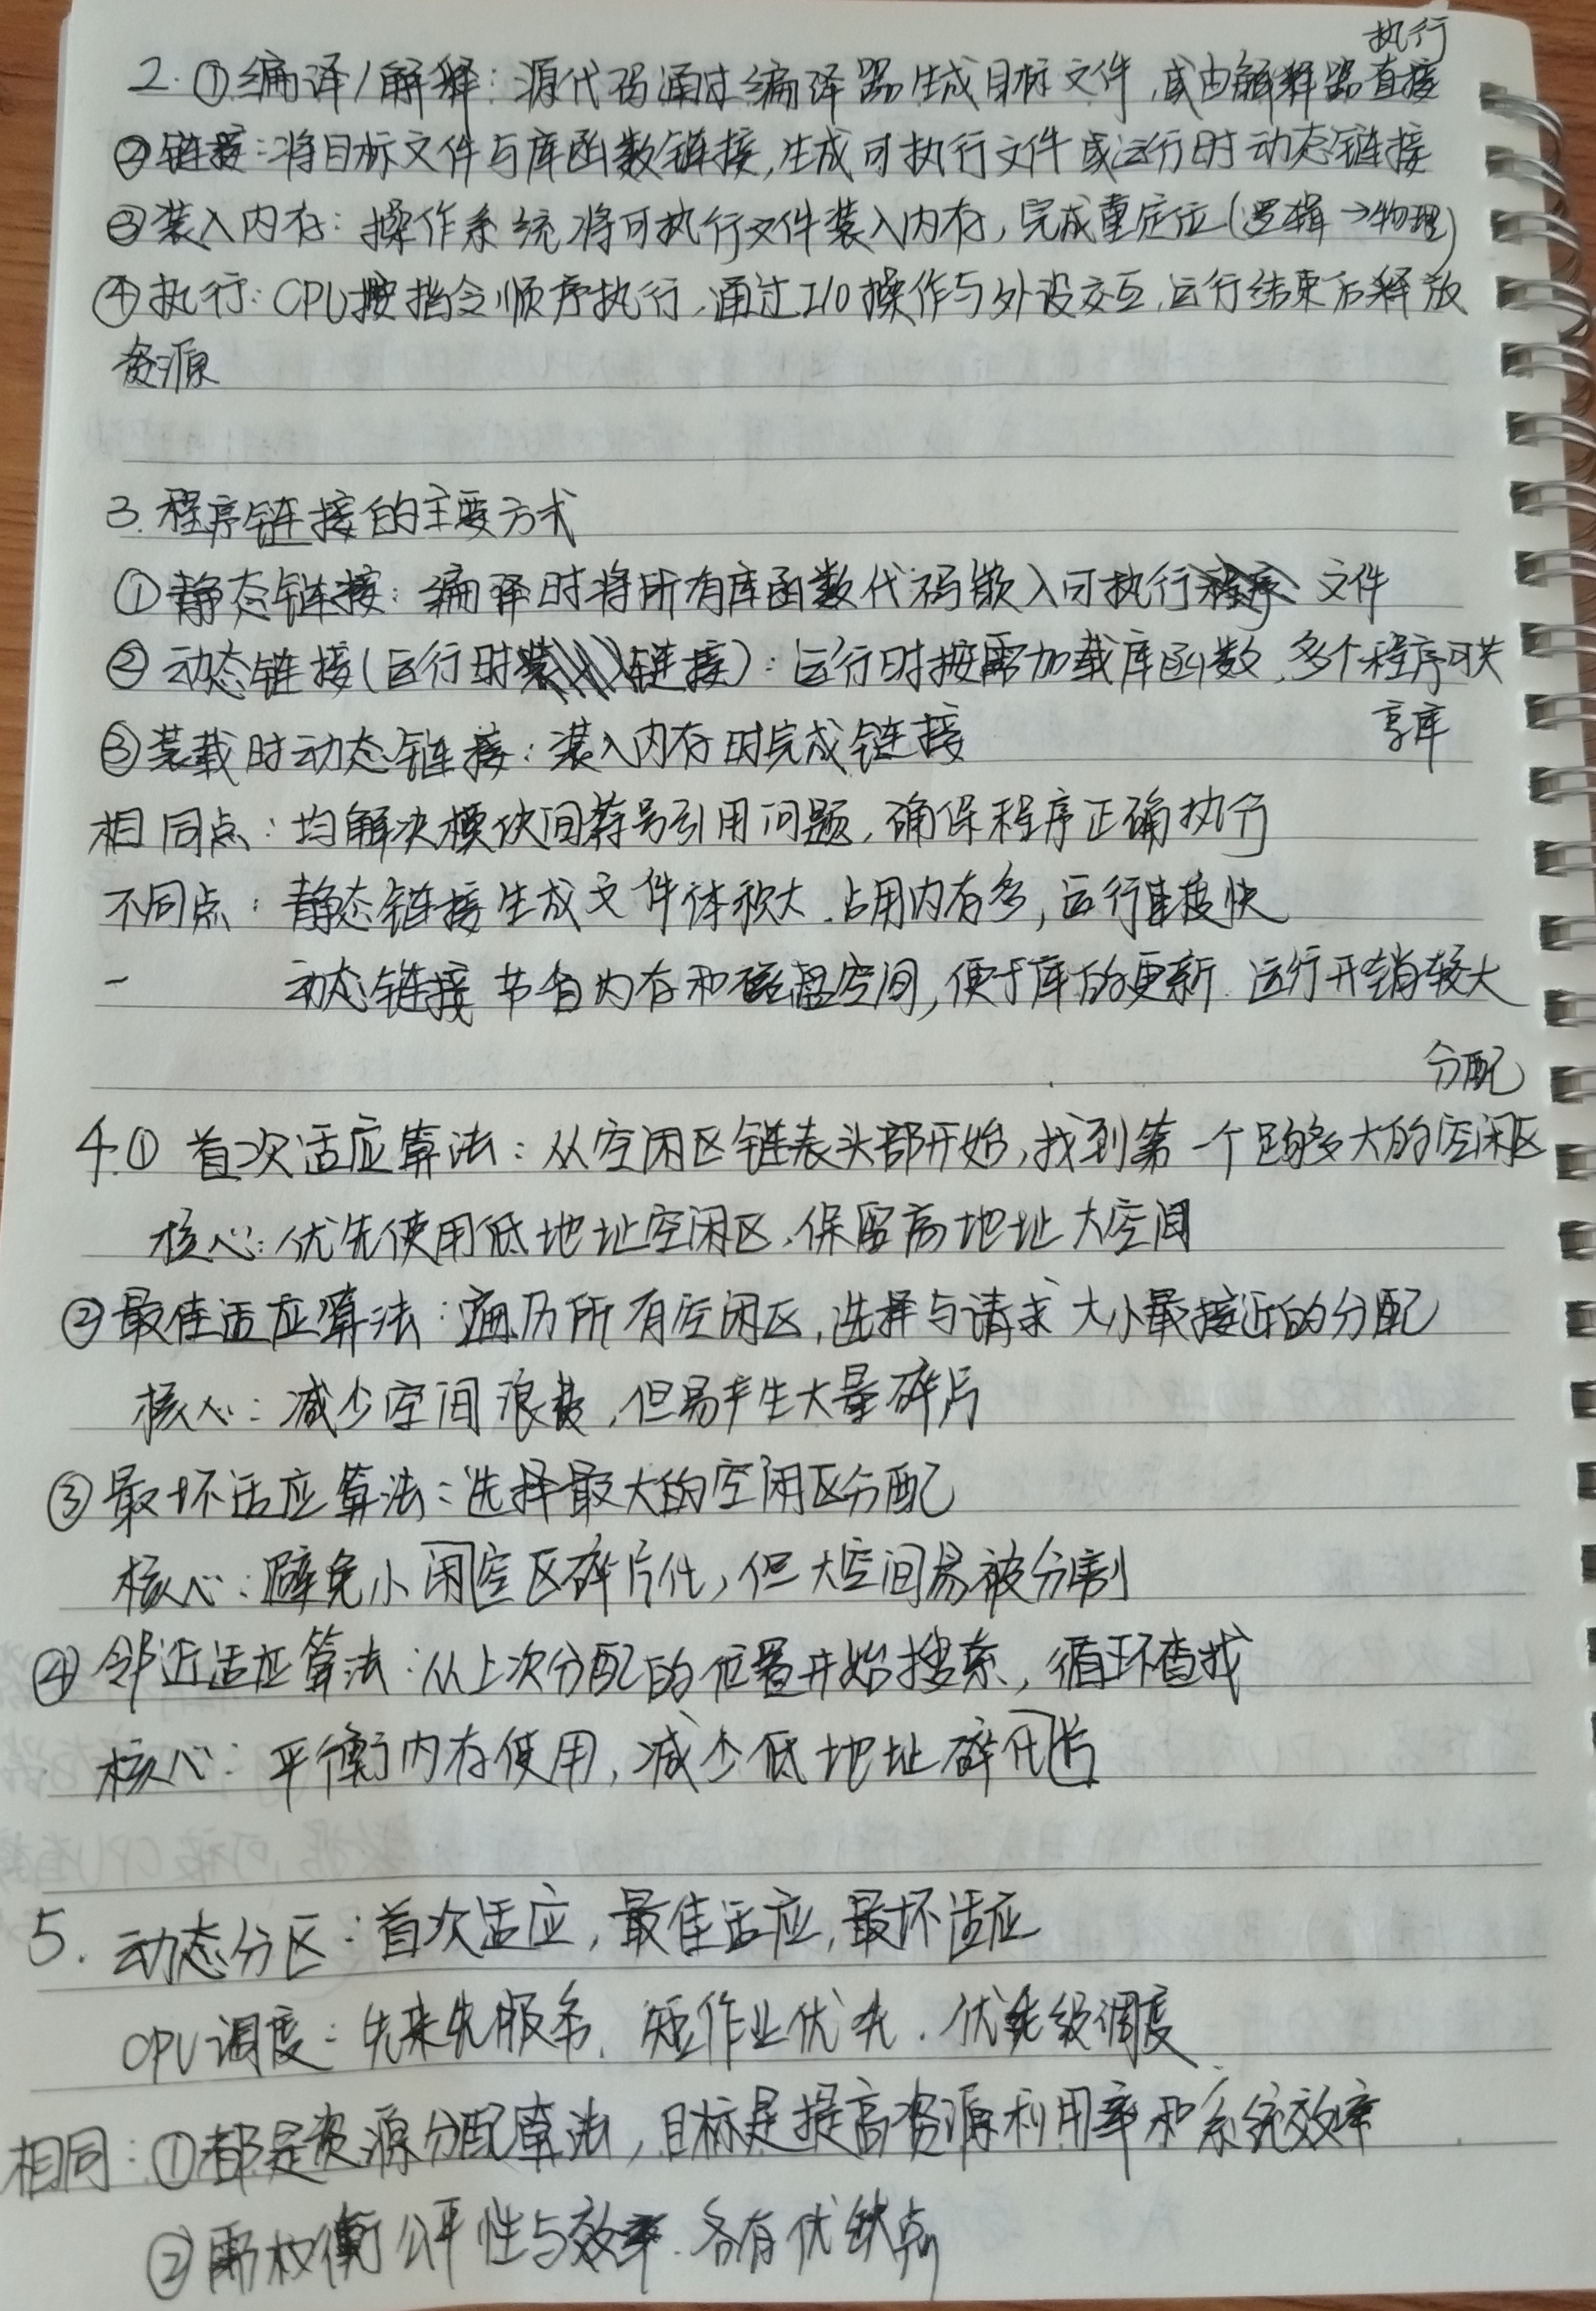 2.①编译/解释：源代码通过编译器生成目标文件,或由解释器直接执行
②链接：将目标文件与库函数链接,生成可执行文件或运行时动态链接
③装入内存：操作系统将可执行文件装入内存,完成重定位(逻辑→物理)
④执行：CPU按指令顺序执行,通过I/O操作与外设交互,运行结束后释放
资源
3.程序链接的主要方式
①静态链接：编译时将所有库函数代码嵌入可执行文件
②动态链接(运行时链接)：运行时按需加载库函数,多个程序可共
享库
③装载时动态链接：装入内存时完成链接
相同点：均解决模块间符号引用问题,确保程序正确执行
不同点：静态链接生成文件体积大.占用内存多,运行速度快
- 动态链接节省内存和磁盘空间,便于库的更新.运行开销较大
4.①首次适应算法：从空闲区链表头部开始,找到第一个足够大的空闲区分配
核心：优先使用低地址空闲区,保留高地址大空间
②最佳适应算法：遍历所有空闲区,选择与请求大小最接近的分配
核心：减少空间浪费,但易产生大量碎片
③最坏适应算法：选择最大的空闲区分配
核心：避免小闲空区碎片化,但大空间易被分割
④邻近适应算法：从上次分配的位置开始搜索,循环查找
核心：平衡内存使用,减少低地址碎化片
5.动态分区：首次适应,最佳适应,最坏适应
CPU调度：先来先服务.短作业优先.优先级调度
相同：①都是资源分配算法,目标是提高资源利用率和系统效率
②需权衡公平性与效率.各有优缺点